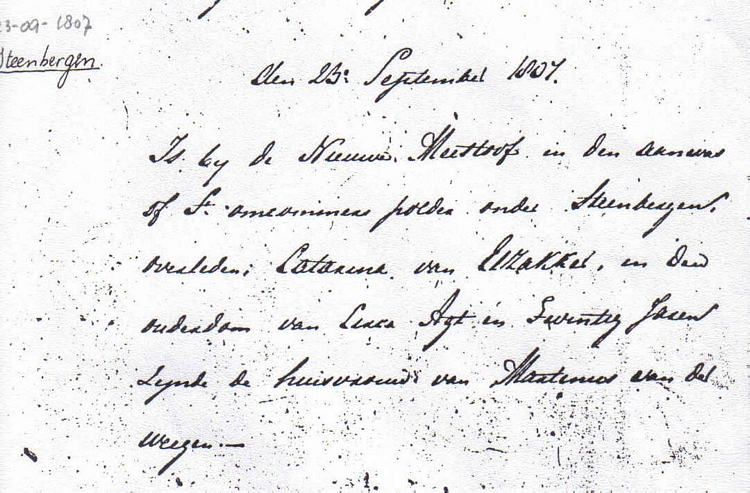 23-09-1807
Steenbergen.
den 23: September 1807.
Is by de Nieuwe Meestoof in den aanwas
of St. omcommers polder onder Steenbergen,
overleden; Catarina van in den
ouderdom van Circa Agt en Twintig Jaren
Zynde de huisvrouw van Martinus van der
weegen.—